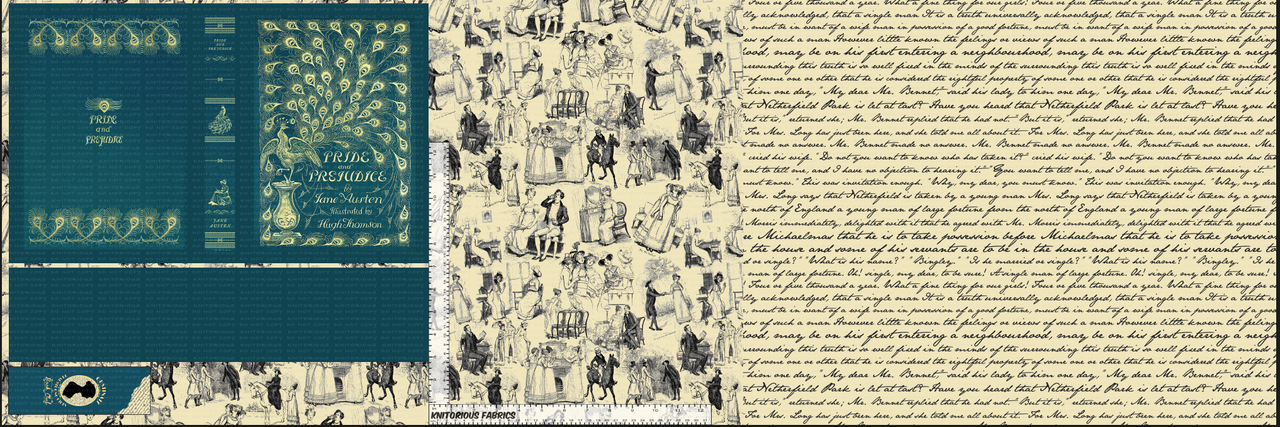 PRIDE
AND
PREJUDICE
JANE
AUSTEN
PRIDE
and
PREJUDICE
PRIDE
and
PREJUDICE
by
Jane Austen
Illustrated by
Hugh Thomson
KNITORIOUS FABRICS
Four or five thousand a year. What a fine thing for our girls! Four or five thousand a year. What a fine
acknowledged, that a single man It is a truth universally acknowledged, that a single man
must be in want of a wife man in possession of a good fortune, must be in want of a wife
of such a man However little known the feelings or views of such a man However little known the feelings
may be on his first entering a neighbourhood, may be on his first entering a
surrounding this truth is so well fixed in the minds of the surrounding this truth is so well fixed in the minds
of some one or other that he is considered the rightful property of some one or other that he is considered the rightful
him one day, "My dear Mr. Bennet," said his lady to him one day, "My dear Mr. Bennet" said his
at Netherfield Park is let at last? Have you heard that Netherfield Park is let at last? Have you heard
returned she; Mr. Bennet replied that he had not. "But it is," returned she; Mr. Bennet replied that he had
For Mrs. Long has just been here, and she told me all about it. For Mrs. Long has just been here, and she told me
made no answer. Mr. Bennet made no answer. Mr. Bennet made no answer.
cried his wife. "Do not you want to know who has taken it?" cried his wife. "Do not you want to know
to tell me, and I have no objection to hearing it." "You want to tell me, and I have no objection to hearing it."
This was invitation enough. "Why, my dear, you must know," This was invitation enough. "Why, my
Mrs. Long says that Netherfield is taken by a young man Mrs. Long says that Netherfield is taken
north of England a young man of large fortune from the north of England a young man of large fortune
Morris immediately, delighted with it that he agreed with Mr. Morris immediately, delighted with it that he agreed
Michaelmas that he is to take possession before Michaelmas that he is to take possession
the house and some of his servants are to be in the house and some of his servants are to
or single?" "What is his name?" "Bingley." "Is he married or single?" "What is his name?" "Bingley." "Is he
man of large fortune. Oh! single, my dear, to be sure! A single man of large fortune. Oh! single, my dear, to be sure!
Four or five thousand a year. What a fine thing for our girls! Four or five thousand a year. What a fine
acknowledged, that a single man It is a truth universally acknowledged, that a single man
must be in want of a wife man in possession of a good fortune, must be in want of a wife
of such a man However little known the feelings or views of such a man However little known the feelings
may be on his first entering a neighbourhood, may be on his first entering a
surrounding this truth is so well fixed in the minds of the surrounding this truth is so well fixed in the minds
of some one or other that he is considered the rightful property of some one or other that he is considered the rightful
him one day, "My dear Mr. Bennet," said his lady to him one day, "My dear Mr. Bennet" said his
at Netherfield Park is let at last? Have you heard that Netherfield Park is let at last? Have you heard
returned she; Mr. Bennet replied that he had not. "But it is," returned she; Mr. Bennet replied that he had
For Mrs. Long has just been here, and she told me all about it. For Mrs. Long has just been here, and she told